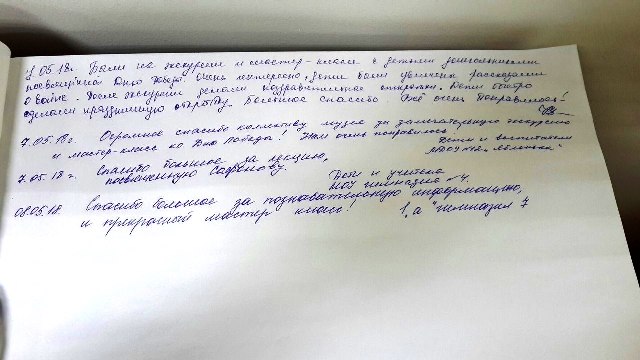 05.18г. Были на экскурсии и мастер-классе с детьми дошкольниками
посвящённой Дню Победы. Очень интересно, дети были увлечены рассказами
о войне. После экскурсии делали поздравительные открытки. Дети быстро
сделали праздничную открытку. Большое спасибо. Всё очень понравилось!
7.05.18г. Огромное спасибо коллективу музея за замечательную экскурсию
и мастер-класс ко Дню Победы! Нам очень понравилось.
Дети и воспитатели
"Яблонька"
7.05.18г. Спасибо большое за лекцию,
посвященную Сафонову.
Дети и учителя
МОУ гимназия №7.
08.05.18. Спасибо большое за познавательную информацию,
и прекрасный мастер класс! 1,а "гимназия 7